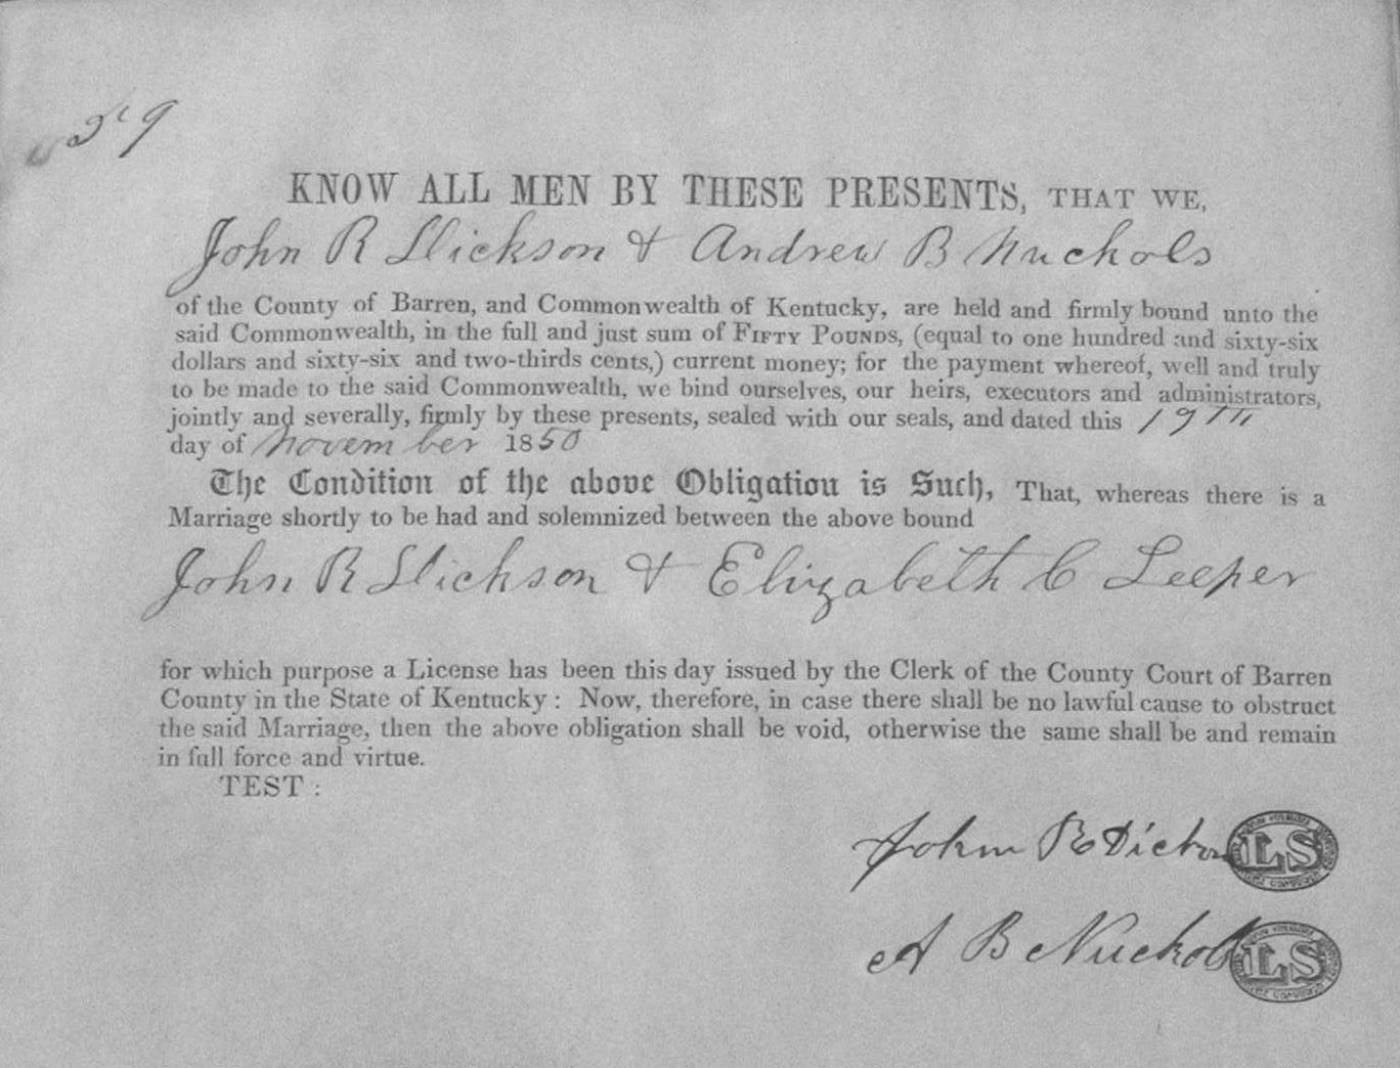 KNOW ALL MEN BY THESE PRESENTS, THAT WE,
John R Dickson & Andrew B Nuckols
of the County of Barren, and Commonwealth of Kentucky, are held and firmly bound unto the
said Commonwealth, in the full and just sum of FIFTY POUNDS, (equal to one hundred and sixty-six
dollars and sixty-six and two-thirds cents,) current money; for the payment whereof, well and truly
to be made to the said Commonwealth, we bind ourselves, our heirs, executors and administrators,
jointly and severally, firmly by these presents, sealed with our seals, and dated this 19TH
day of November 1850
The Condition of the above Obligation is Such, That, whereas there is a
Marriage shortly to be had and solemnized between the above bound
John R Dickson & Elizabeth C Leeper
for which purpose a License has been this day issued by the Clerk of the County Court of Barren
County in the State of Kentucky: Now, therefore, in case there shall be no lawful cause to obstruct
the said Marriage, then the above obligation shall be void, otherwise the same shall be and remain
in full force and virtue.
TEST:
John R Dickson LS
A B Nuckols LS